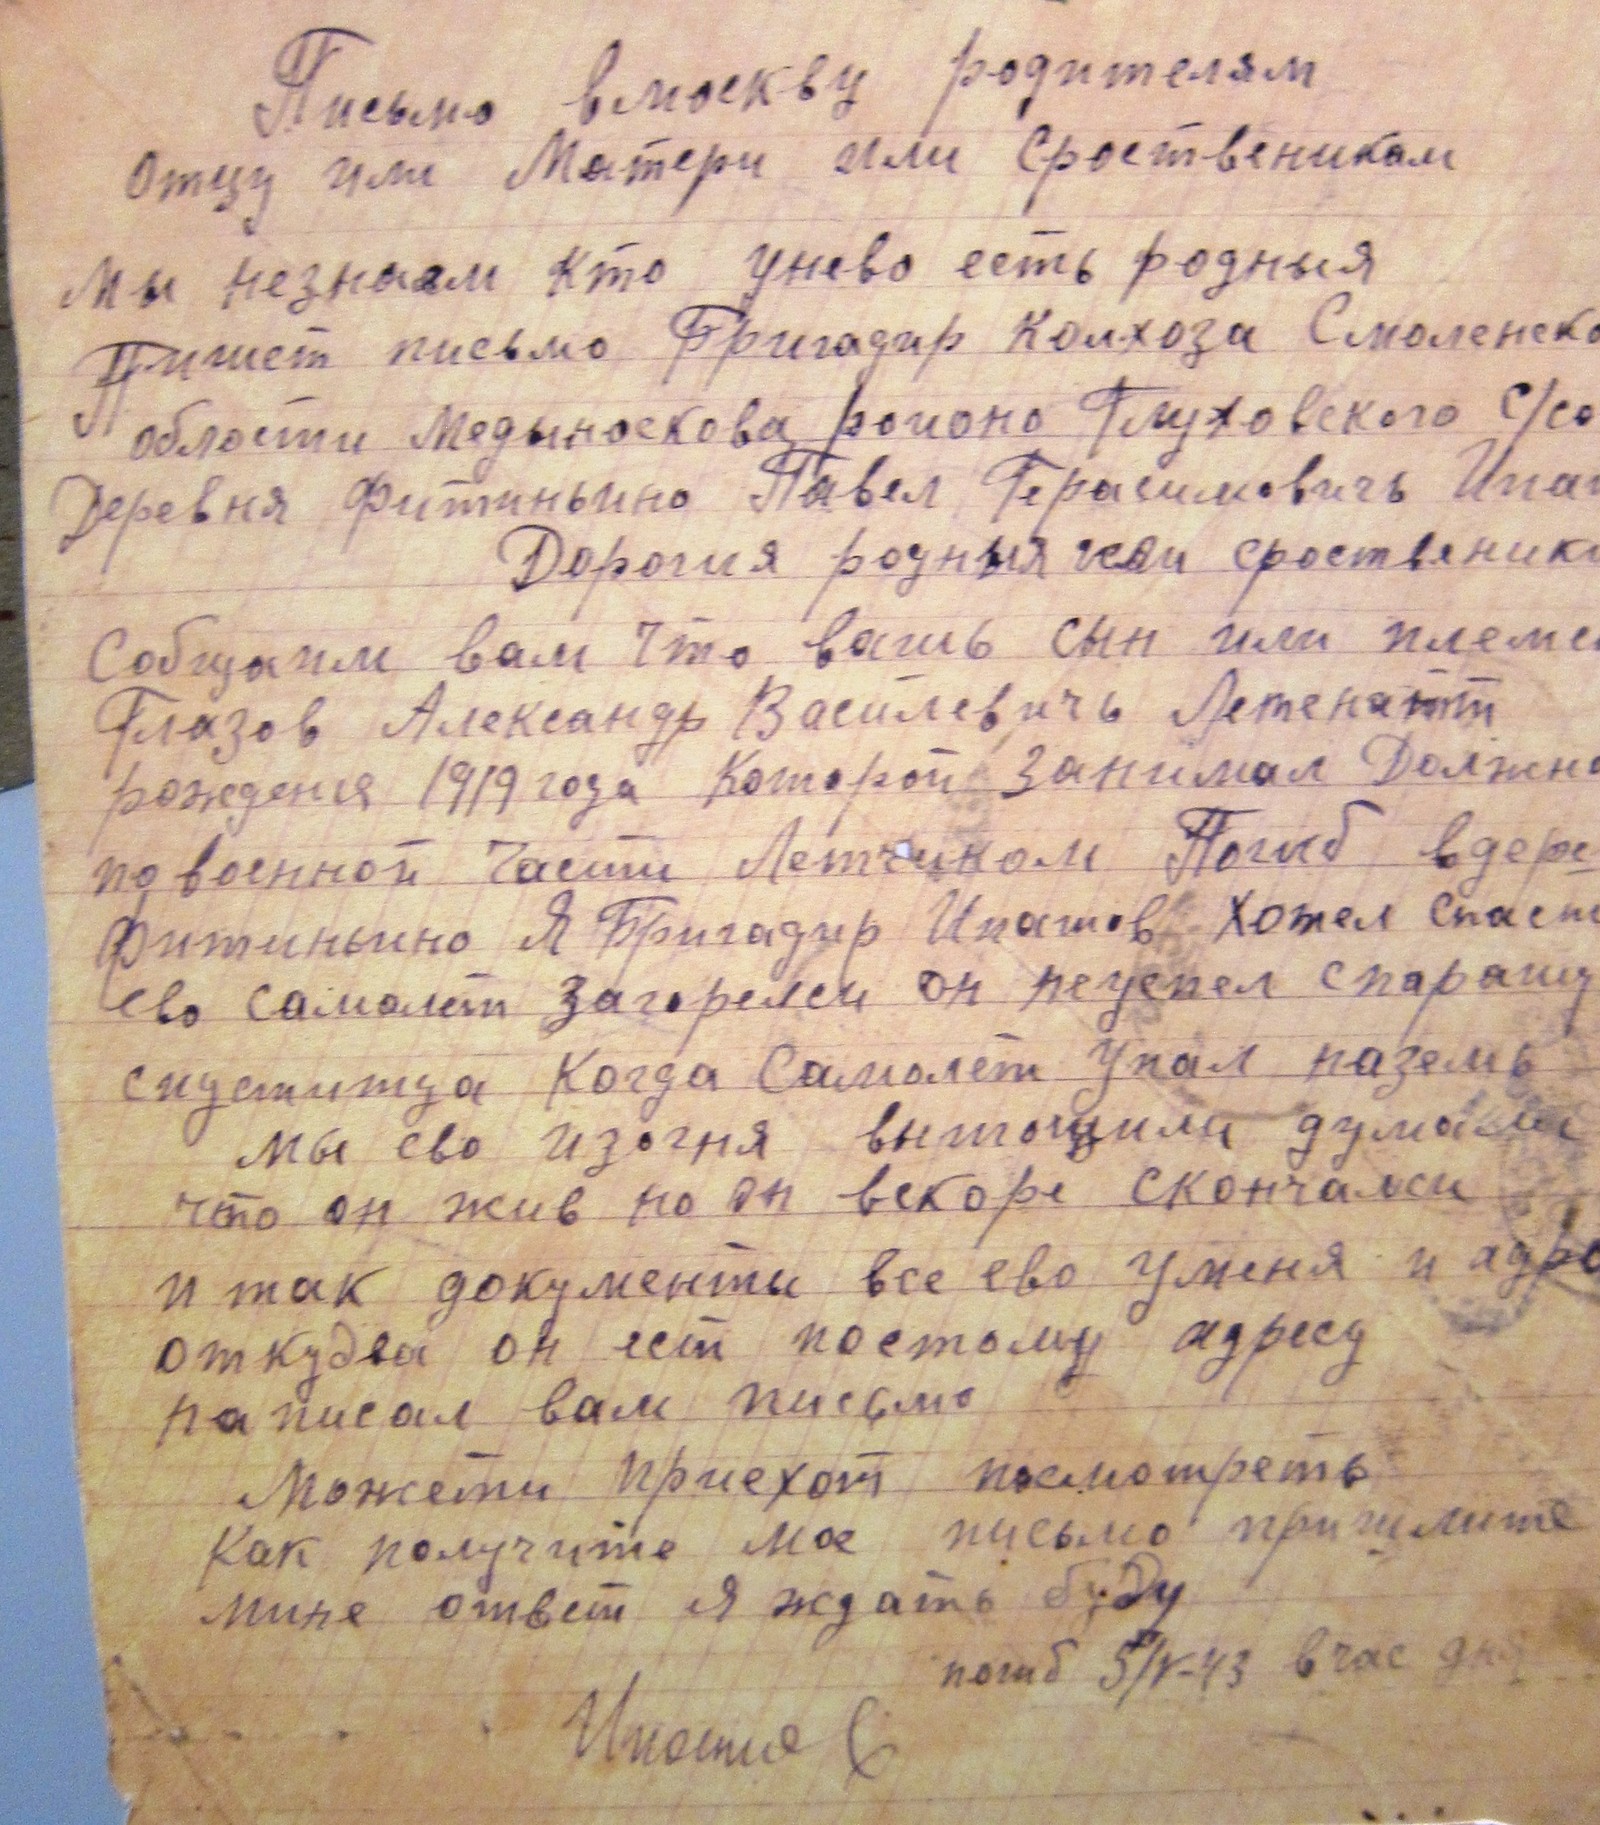 Письмо вмоскву родителям
отцу или Матери или сроственикам
мы незнаем кто унево есть родныя
Пишет письмо Бригадир Колхоза Смоленско
области Медыноскова района Глуховского С/со
Деревня Фитиньино Павел Герасимовичь Ипат
Дорогия родныя или сроствяники
Собщаим вам что вашь сын или племе
Глазов Александр Василевичь Летенатт
рождения 1919 года Которой Занимал Должно
по военной части Летчиком Погиб вдере
Фитиньино Я Бригадир Ипатов Хотел спаст
ево самолет Загорелси он неуспел спарашу
спуститца Когда Самолет упал наземь
мы ево изогня вытощили думали
что он жив но он вскоре скончалси
и так документы все ево уменя и адре
откудва он ест поетому адресу
написал вам письмо
Можети приехат посмотреть
Как получите мое письмо пришлите
мине ответ я ждать буду
погиб 5/V-43 вчас дня